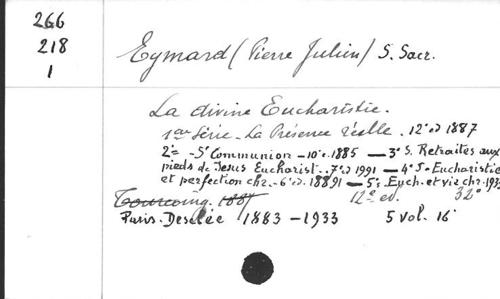 266
218
1
Eymard (Pierre Julien) S. Sacr.
La divine Eucharistie.
1ère Série - La Présence réelle. 12e éd 1887
2e - Se Communion - 10e é. 1885 — 3e S. Retraites aux
pieds de Jesus Eucharist. - 7e éd 1991 - 4e S - Eucharistie
et perfection chr. - 6e éd. 18891 - 5e Euch. et vie chr. 193
12e ed. 32°
Tourcoing. 1887
Paris. Desclée 1883 - 1933 5 vol. 16°